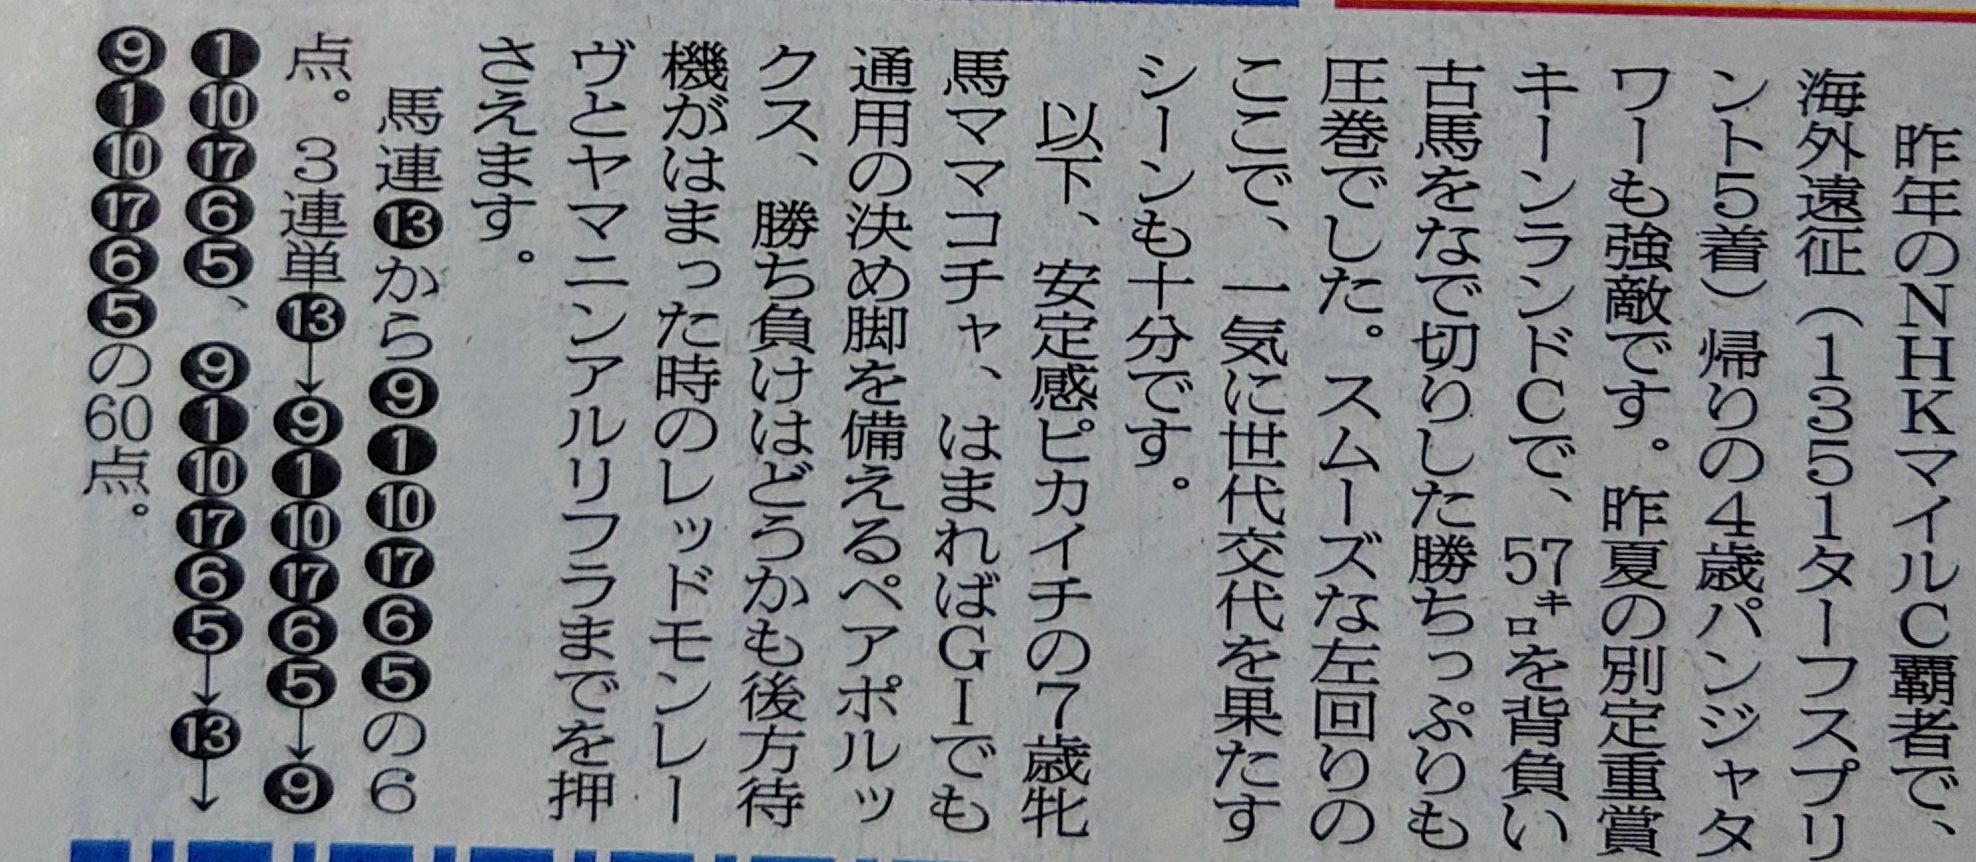 昨年のNHKマイルC覇者で、
海外遠征（1351ターフスプリ
ント5着）帰りの4歳パンジャタ
ワーも強敵です。昨夏の別定重賞
キーンランドCで、57㌔を背負い
古馬をなで切りした勝ちっぷりも
圧巻でした。スムーズな左回りの
ここで、一気に世代交代を果たす
シーンも十分です。
以下、安定感ピカイチの7歳牝
馬ママコチャ、はまればGIでも
通用の決め脚を備えるペアポルッ
クス、勝ち負けはどうかも後方待
機がはまった時のレッドモンレー
ヴとヤマニンアルリフラまでを押
さえます。
馬連⓭から❾❶❿⓱❻❺の6
点。3連単⓭→❾❶❿⓱❻❺→❾
❶❿⓱❻❺、❾❶❿⓱❻❺→⓭→
❾❶❿⓱❻❺の60点。